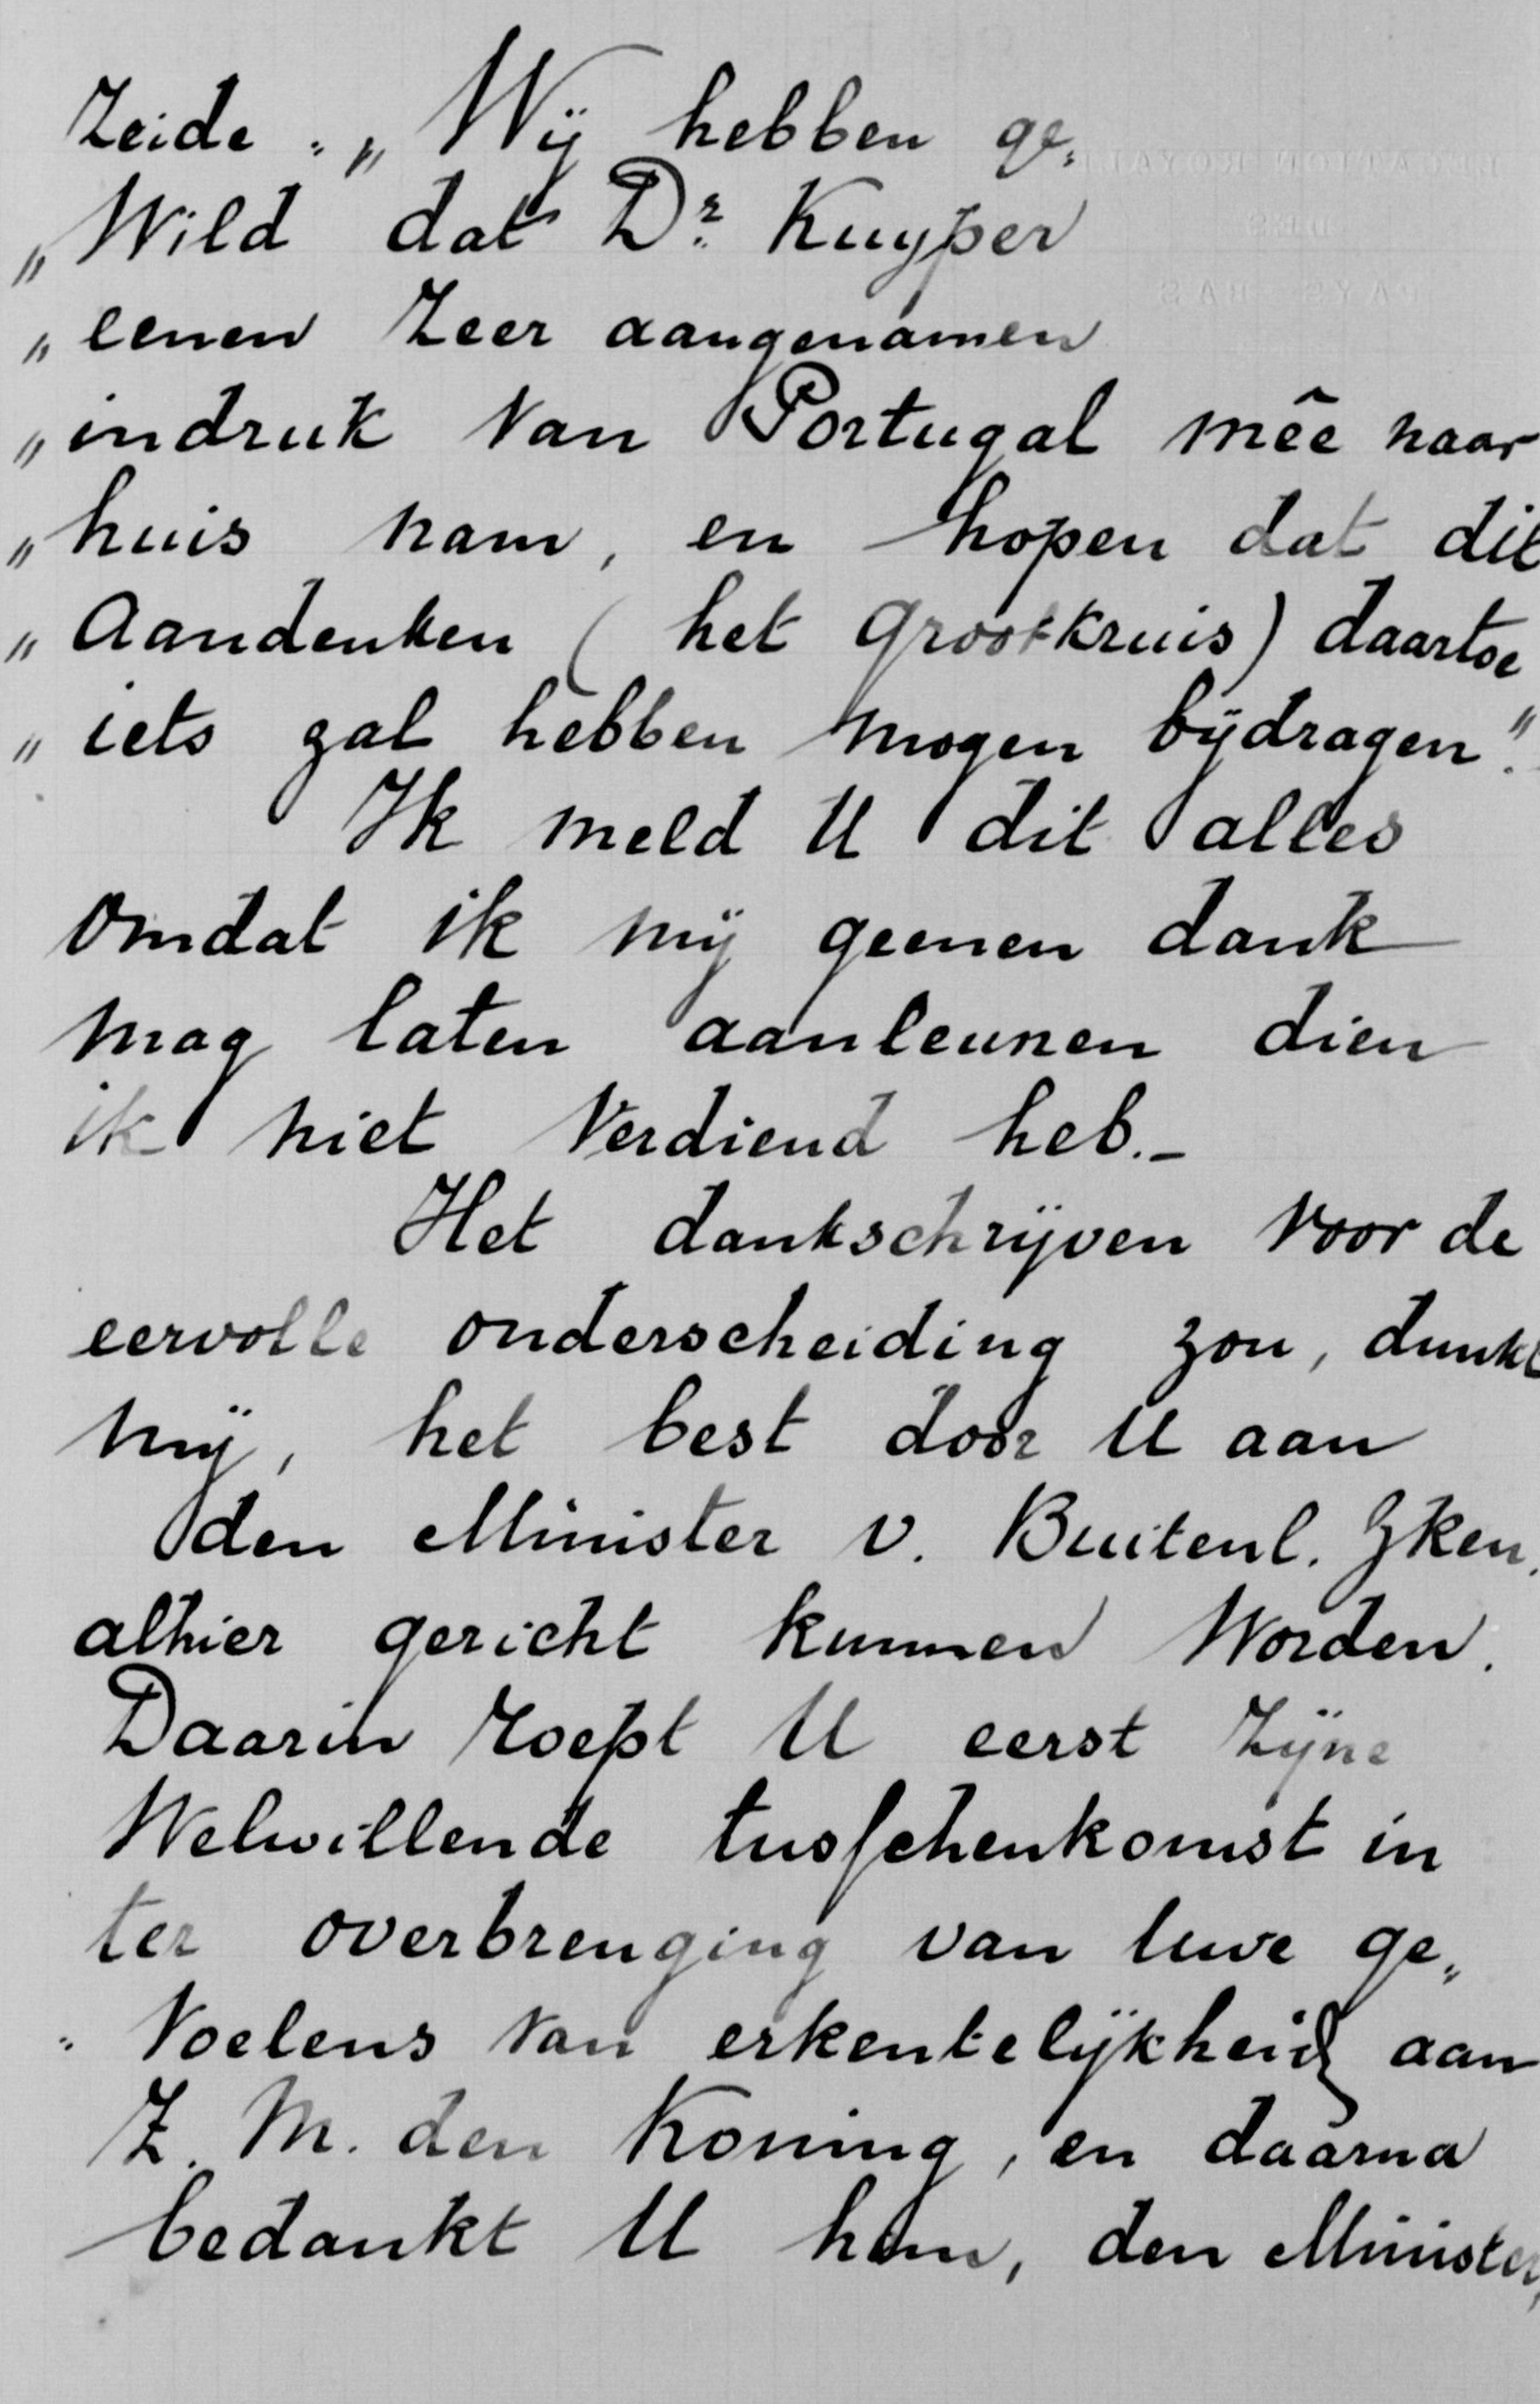 Zeide: „Wij hebben ge„
„Wild dat Dr. Kuyper
„eenen Zeer aangenamen
„indruk van Portugal mêe naar
„huis nam, en hopen dat dit
„Aandenken (het Grootkruis) daartoe
„iets zal hebben mogen bijdragen."
Ik meld U dit alles
omdat ik mij geenen dank
mag laten aanleunen dien
ik niet verdiend heb.-
Het dankschrijven voor de
eervolle onderscheiding zou, dunkt
mij, het best door U aan
den Minister v. Buitenl. Zken.
alhier gericht kunnen Worden.
Daarin roept U eerst Zijne
Welwillende tusschenkomst in
ter overbrenging van Uwe ge„
„voelens van erkentelijkheid aan
Z. M. den Koning, en daarna
bedankt U hem, den Minister,